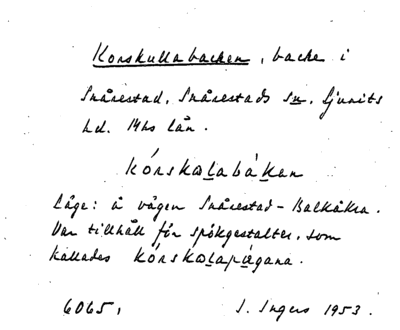 Korskullabacken, backe i
Snårestad, Snårestads sn. Ljunits
hd. Mhs län.
kórskωlabáken
Läge: å vägen Snårestad - Balkåkra.
Var tillhåll för spökgestalter, som
kallades kórskωlapágana.
6065, I. Ingers 1953.